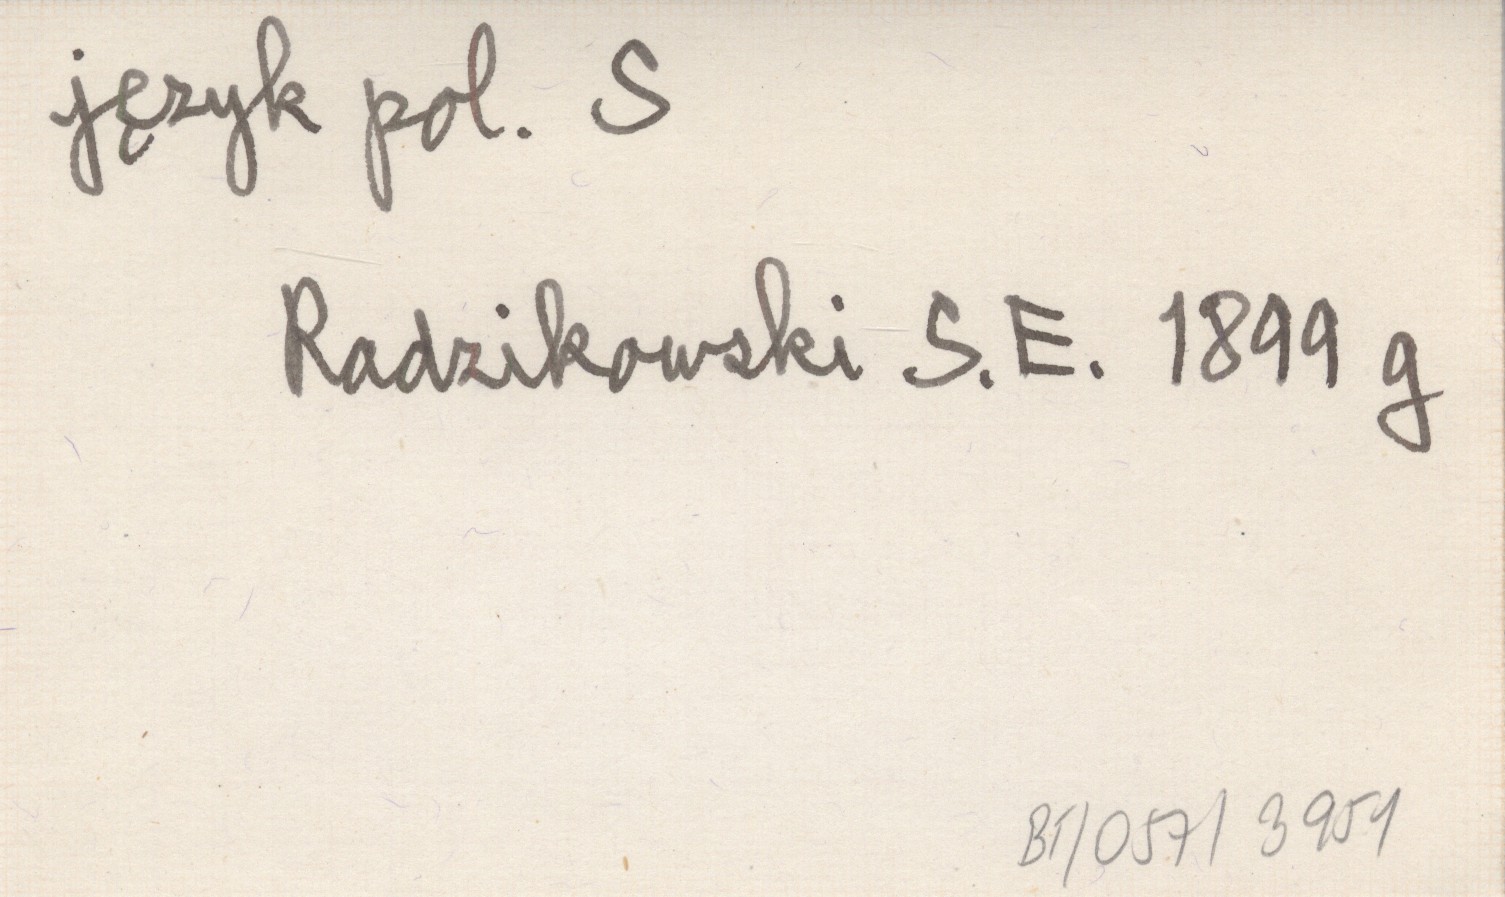 język pol. S
Radzikowski S.E. 1899 g
BT/057/ 3951